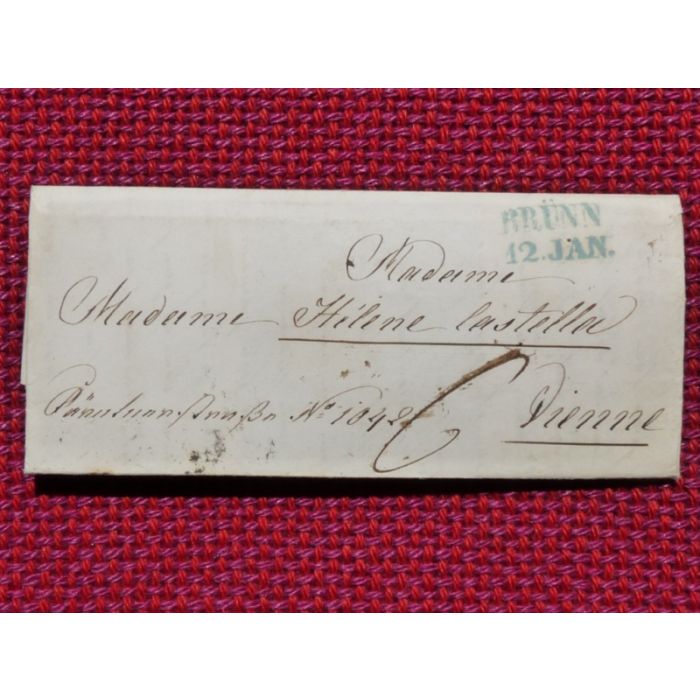 BRÜNN
12. JAN.
Madame
Madame Hélene Castella
Kärntnerstraße No 1042
Vienne